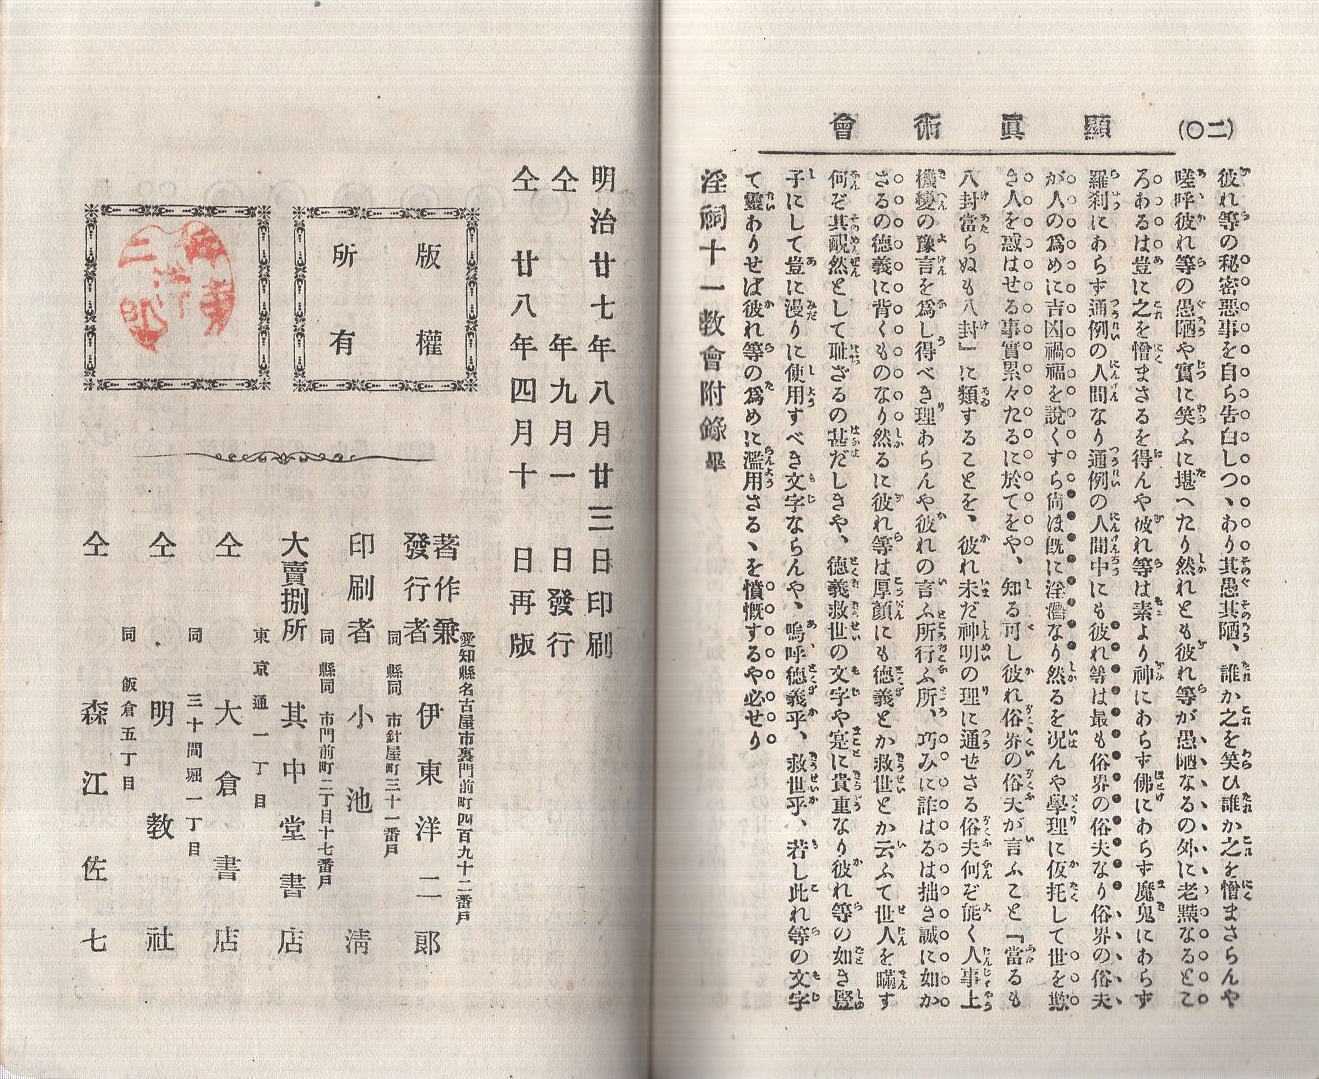 (二〇)
顯眞術會
彼れ等の秘密惡事を自ら告白しつゝあり其愚其陋、誰か之を笑ひ誰か之を憎まさらんや
嗟呼彼れ等の愚陋や實に笑ふに堪へたり然れとも彼れ等が愚陋なるの外に老黠なるとこ
ろあるは豈に之を憎まさるを得んや彼れ等は素より神にあらす佛にあらす魔鬼にあらす
羅刹にあらす通例の人間なり通例の人間中にも彼れ等は最も俗界の俗夫なり俗界の俗夫
が人の爲めに吉凶禍福を說くすら尙ほ既に淫瀆なり然るを况んや學理に仮托して世を欺
き人を惑はせる事實累々たるに於てをや、知る可し彼れ俗界の俗夫が言ふこと「當るも
八卦當らぬも八卦」に類することを、彼れ未だ神明の理に通せさる俗夫何ぞ能く人事上
機變の豫言を爲し得べき理あらんや彼れの言ふ所行ふ所、巧みに詐はるは拙き誠に如か
さるの德義に背くものなり然るに彼れ等は厚顏にも德義とか救世とか云ふて世人を瞞す
何ぞ其靦然として耻ざるの甚だしきや、德義救世の文字や寔に貴重なり彼れ等の如き豎
子にして豈に漫りに使用すべき文字ならんや、嗚呼德義乎、救世乎、若し此れ等の文字
て靈わりせば彼れ等の爲めに濫用さるゝを憤慨するや必せり
淫祠十一教會附錄畢
明治廿七年八月廿三日印刷
仝 年九月一日發行
仝 廿八年四月十日再版
版權
所有
愛知縣名古屋市裏門前町四百九十二番戶
著作兼
發行者
伊東洋二郞
同縣同市針屋町三十一番戶
印刷者 小池淸
同縣同市門前町二丁目十七番戶
大賣捌所 其中堂書店
東京通一丁目
仝 大倉書店
同 三十間堀一丁目
仝 明教社
同 飯倉五丁目
仝 森江佐七